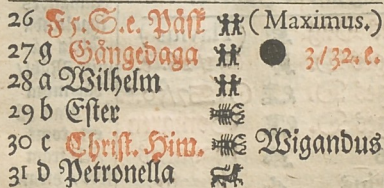 26 F 5. S. e. Påsk (Maximus.)
27 g Gångedaga 3/32. e.
28 a Wilhelm
29 b Ester
30 c Christ. Him. Wigandus
31 d Petronella